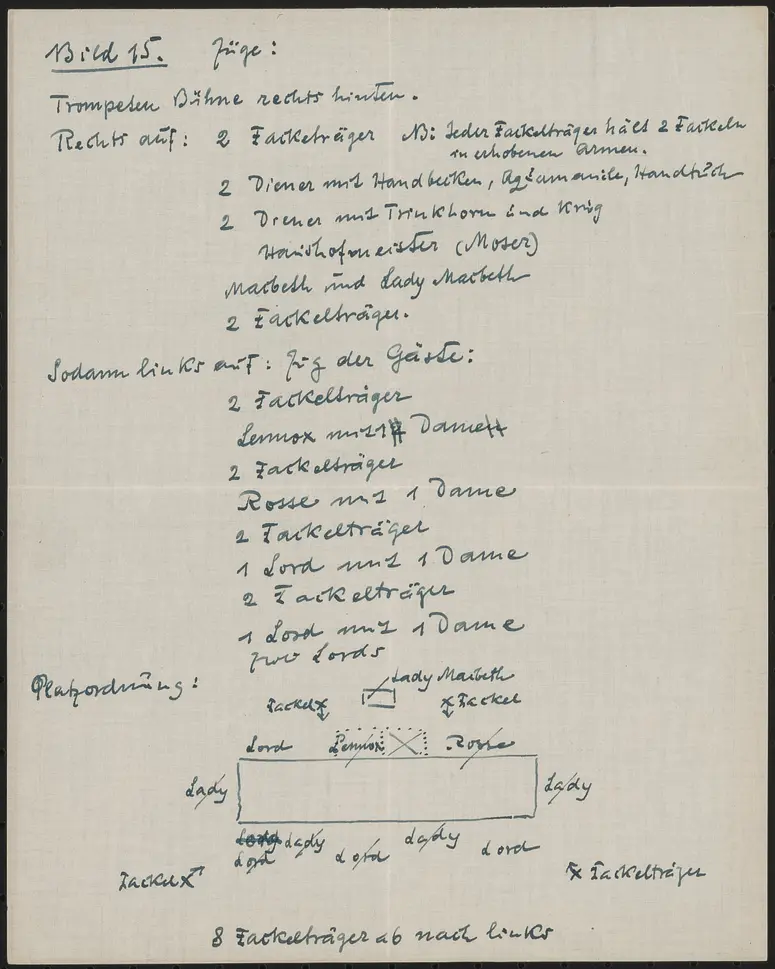 Bild 15. Züge:
Trompeten Bühne rechts hinten.
Rechts auf: 2 Fackelträger NB: Jeder Fackelträger hält 2 Fackeln
in erhobenen Armen.
2 Diener mit Handbecken, Aquamanile, Handtuch
2 Diener mit Trinkhorn und Krug
Haushofmeister (Moser)
Macbeth und Lady Macbeth
2 Fackelträger.
Sodann links auf: Zug der Gäste:
2 Fackelträger
Lennox mit 1 Dame
2 Fackelträger
Rosse mit 1 Dame
2 Fackelträger
1 Lord mit 1 Dame
2 Fackelträger
1 Lord mit 1 Dame
zwo Lords
Platzordnung:
Lady Macbeth
Fackel x x Fackel
Lord Lennox Rosse
Lady Lady
Lady Lady
Lord Lord Lord
Fackel x x Fackelträger
8 Fackelträger ab nach links